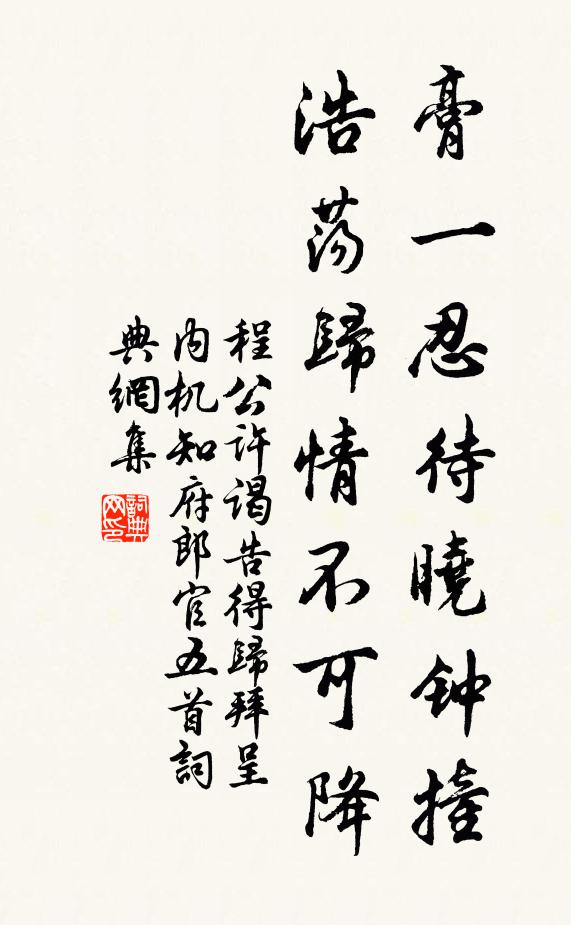 膏一忍待曉钟撞
浩荡歸情不可降
程公许谒告得歸拜呈
内机知府郎官五首詞
典網集
詞典网印